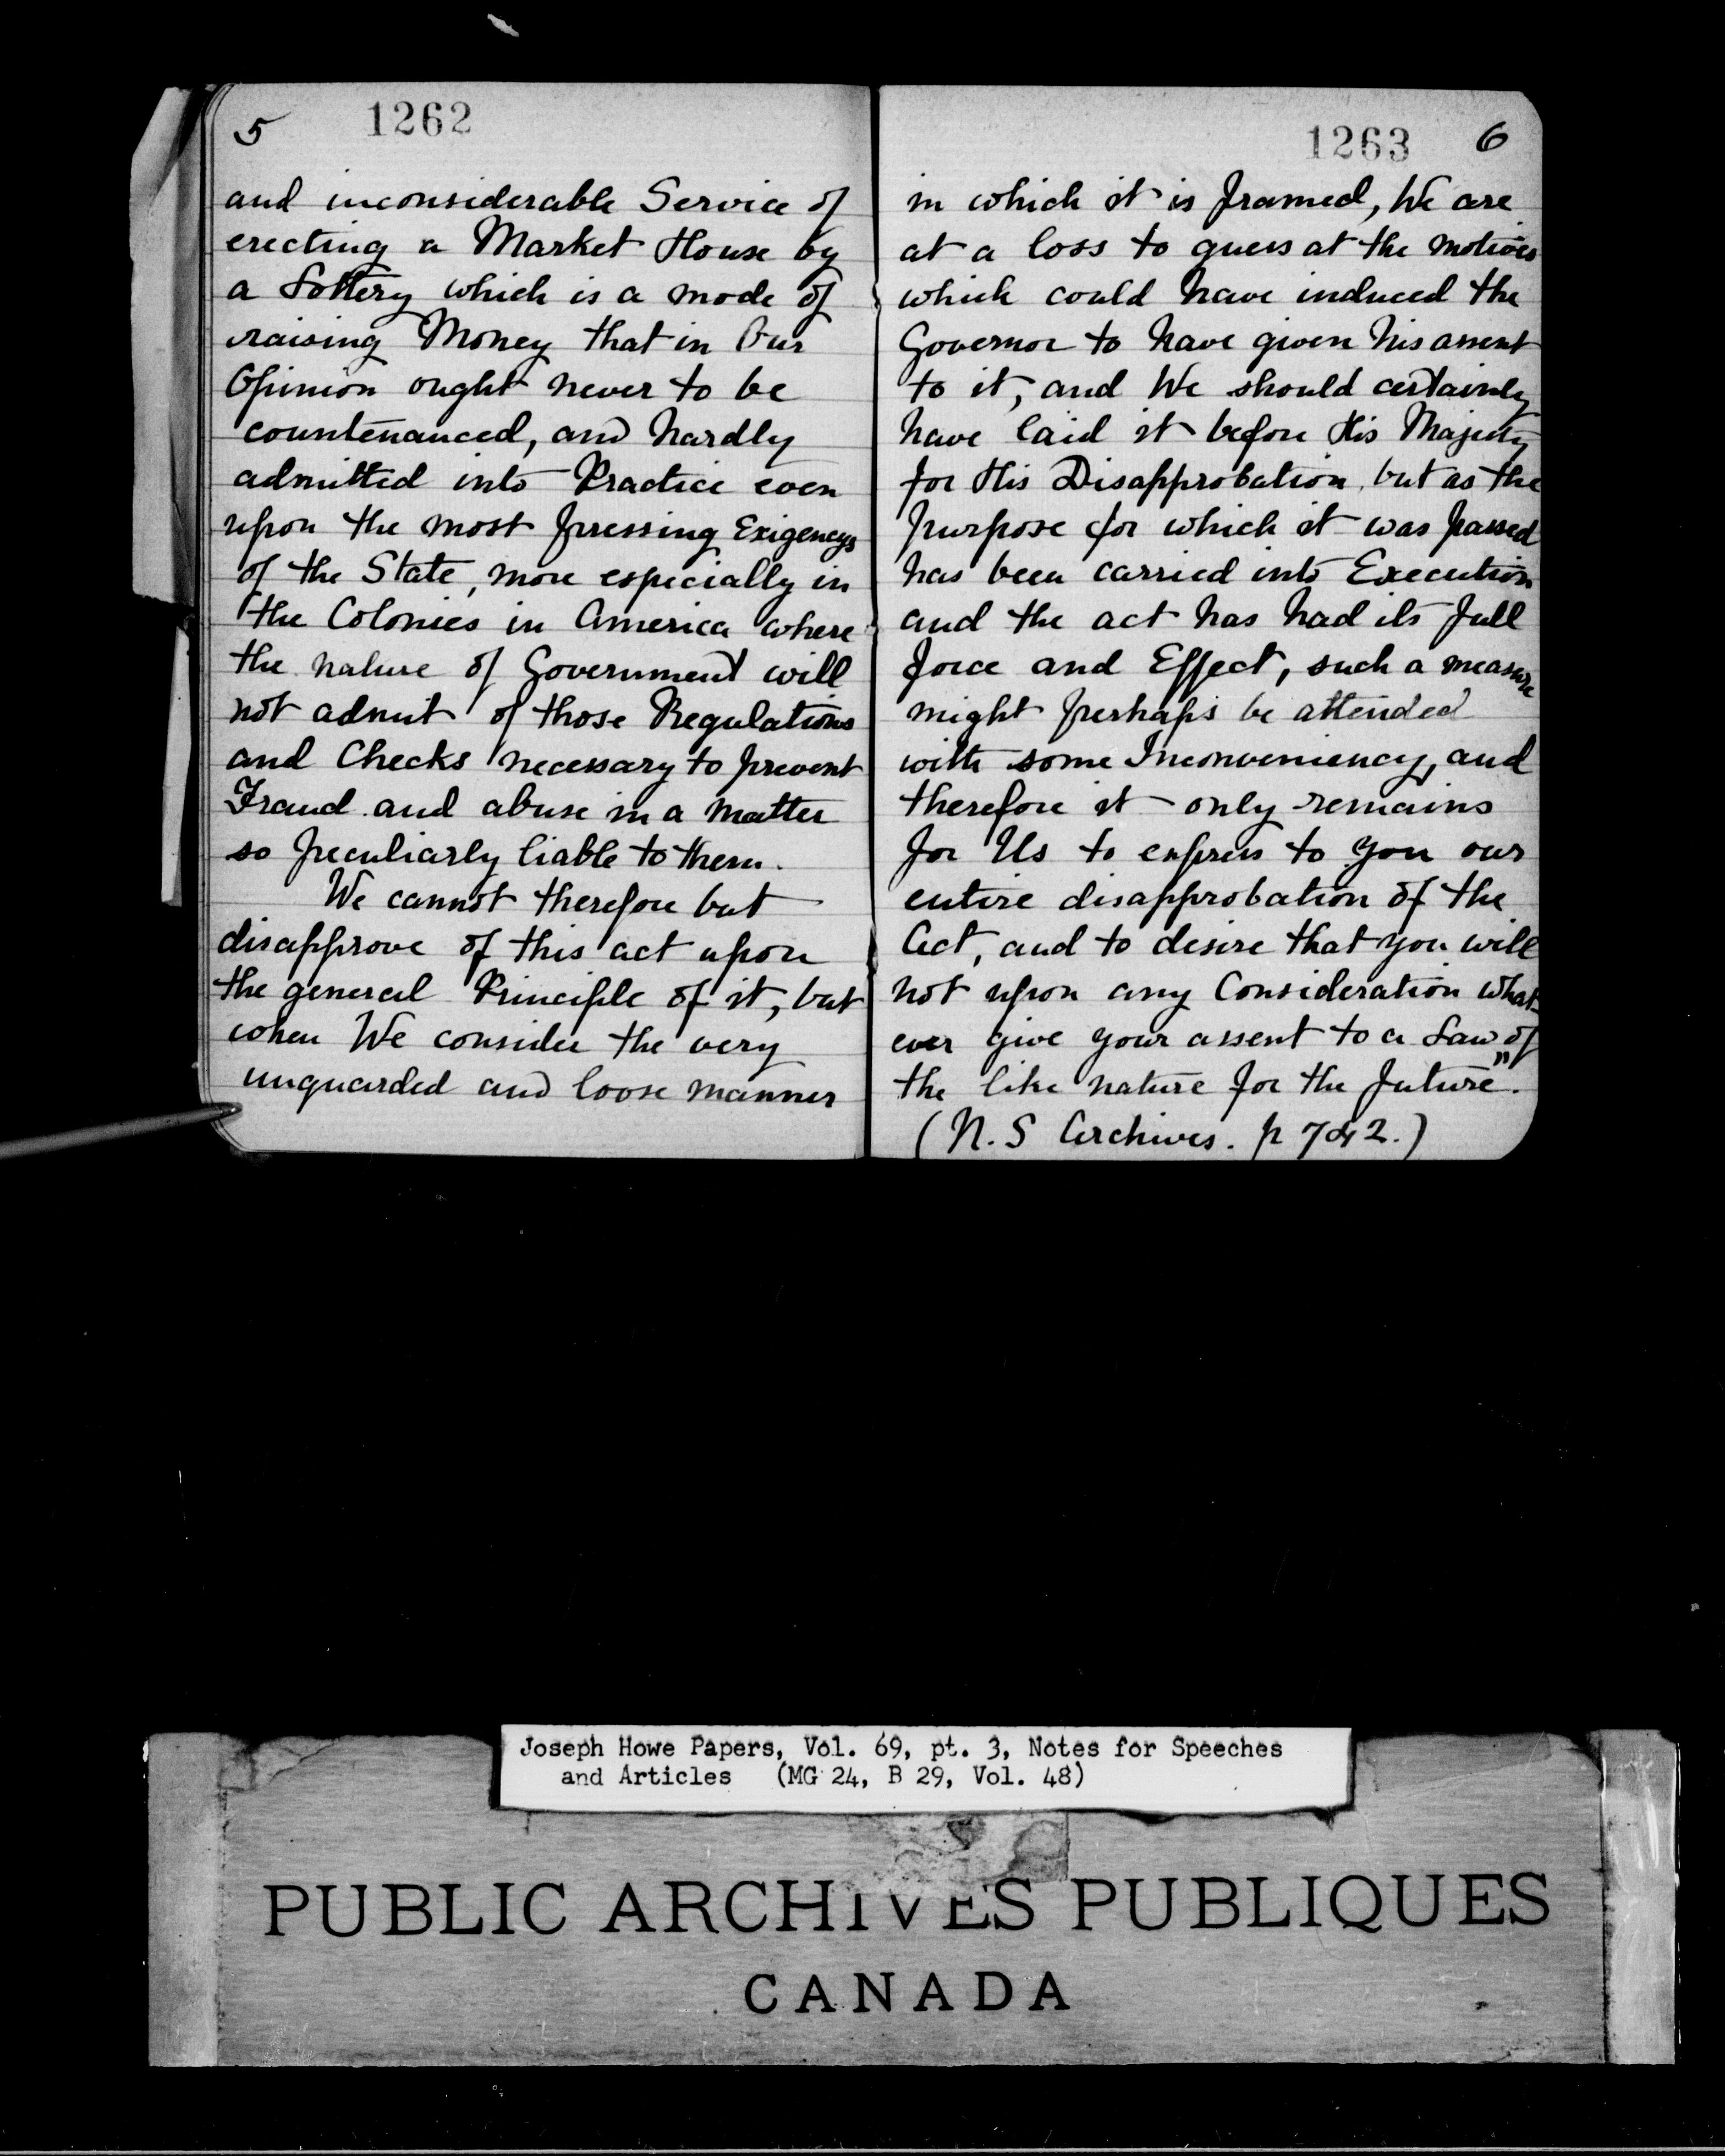 5 1262
and inconsiderable Service of
erecting a Market House by
a Lottery which is a mode of
raising Money that in Our
Opinion ought never to be
countenanced, and hardly
admitted into Practice even
upon the most pressing Exigencys
of the State, more especially in
the Colonies in America where
the nature of Government will
not admit of those Regulations
and Checks necessary to prevent
Fraud and abuse in a matter
so peculiarly liable to them.
We cannot therefore but
disapprove of this act upon
the general Principle of it, but
when We consider the very
unguarded and loose manner
1263 6
in which it is framed, We are
at a loss to guess at the motives
which could have induced the
Governor to have given his assent
to it, and We should certainly
have laid it before His Majesty
for His Disapprobation, but as the
purpose for which it was passed
has been carried into Execution
and the act has had its full
force and Effect, such a measure
might perhaps be attended
with some Inconveniency, and
therefore it only remains
for Us to express to you our
entire disapprobation of the
Act, and to desire that you will
not upon any Consideration what-
ever give your assent to a Law of
the like nature for the future".
(N.S Archives. p 742.)
Joseph Howe Papers, Vol. 69, pt. 3, Notes for Speeches
and Articles (MG 24, B 29, Vol. 48)
PUBLIC ARCHIVES PUBLIQUES
CANADA